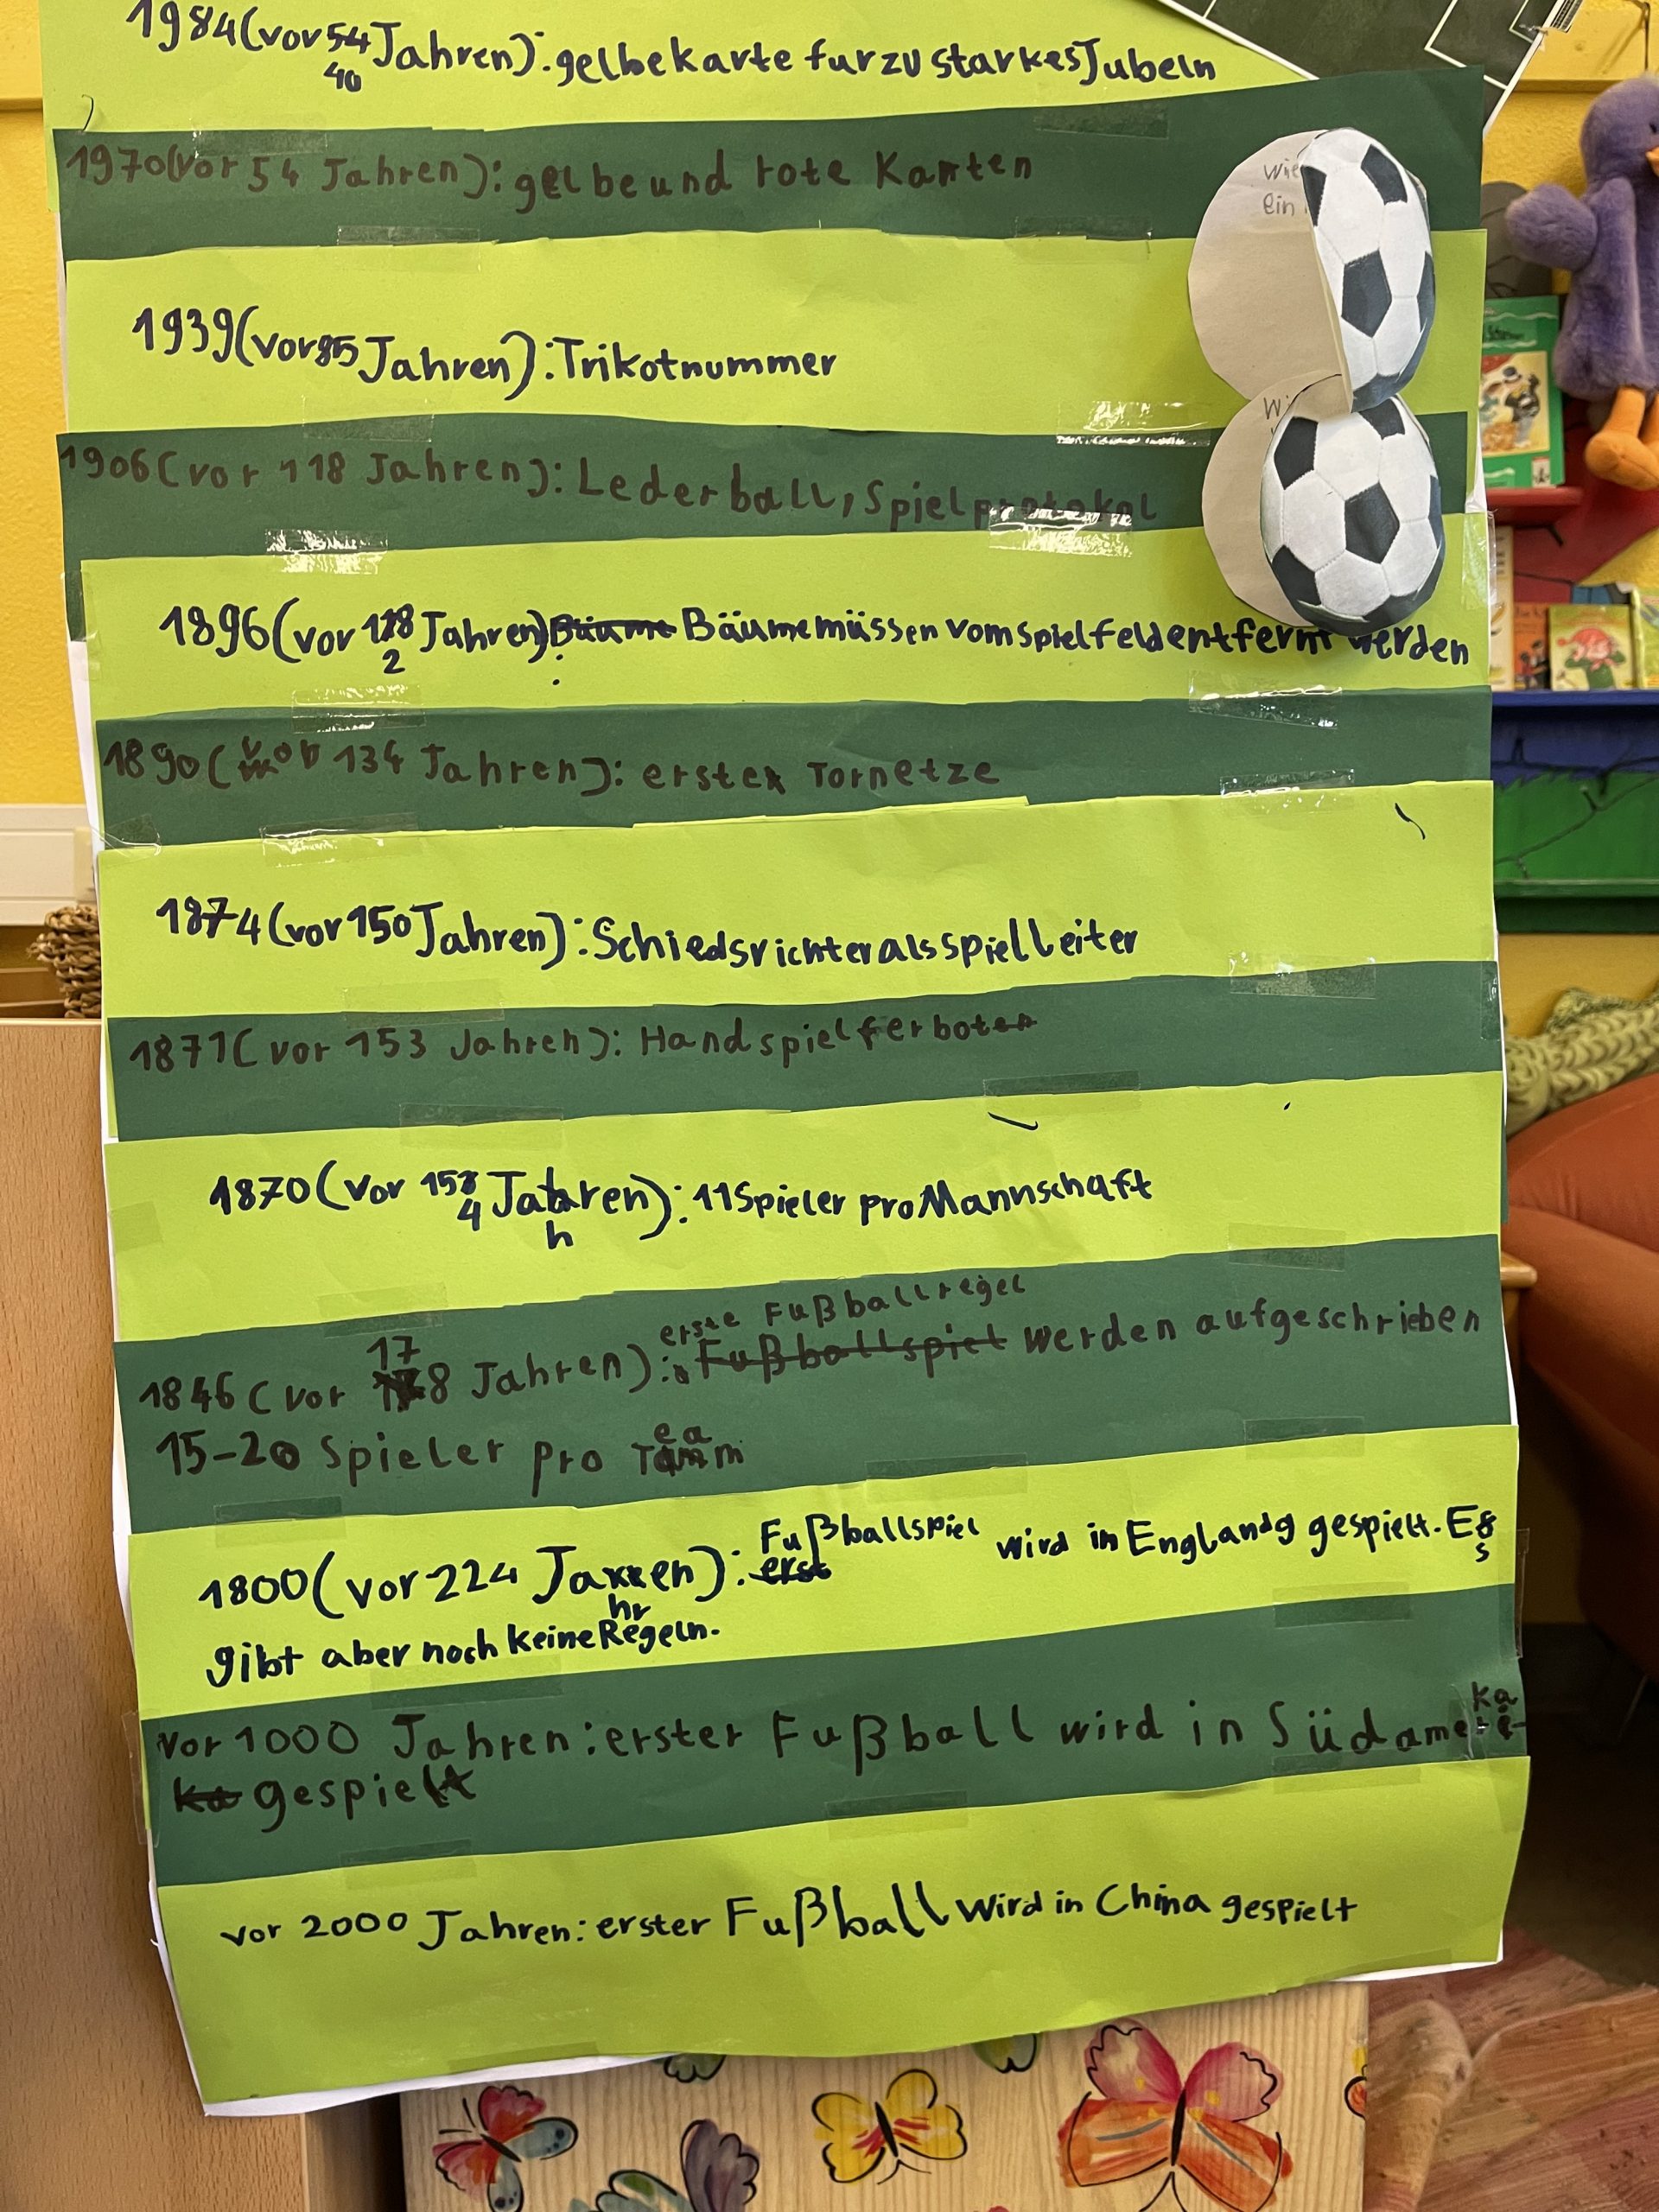 1984(vor 40 Jahren): gelbe karte fur zu starkes Jubeln
1970(vor 54 Jahren): gelbe und rote Karten
Wie
ein
1939(vor 85 Jahren): Trikotnummer
1906(vor 118 Jahren): Lederball, Spielprotokol
1896(vor 128 Jahren): Bäume müssen vom spielfeld entfernt werden
1890(vor 134 Jahren): erste Tornetze
1874(vor 150 Jahren): Schiedsrichter als spielleiter
1871(vor 153 Jahren): Handspiel ferboten
1870(vor 154 Jahren): 11 Spieler pro Mannschaft
1846(vor 178 Jahren): erste Fußballregel werden aufgeschrieben
15-20 Spieler pro Team
1800(vor 224 Jahren): Fußballspiel wird in England gespielt. Es
gibt aber noch keine Regeln.
Vor 1000 Jahren: erster Fußball wird in Südamerika
gespielt
vor 2000 Jahren: erster Fußball wird in China gespielt